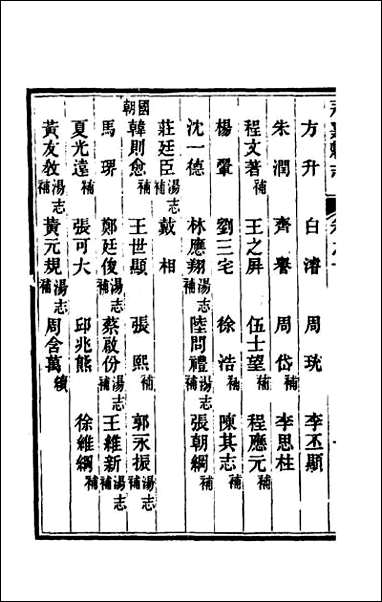 方升 白濬 周珫 李丕顯
朱潤 齊譽 周岱補 李思柱
程文著補 王之屏 伍士望補 程應元補
楊鞏 劉三宅 徐浩補 陳其志補
沈一德 林應翔湯志補 陸問禮湯志補 張朝綱補
莊廷臣湯志補 戴相
國朝韓則愈補 王世顯 張熙補 郭永振湯志補
馬琾 鄭廷俊湯志補 蔡啟份湯志補 王維新湯志補
夏光遠補 張可大 邱兆熊 徐維綱補
黃友教湯志補 黃元規湯志補 周含萬續